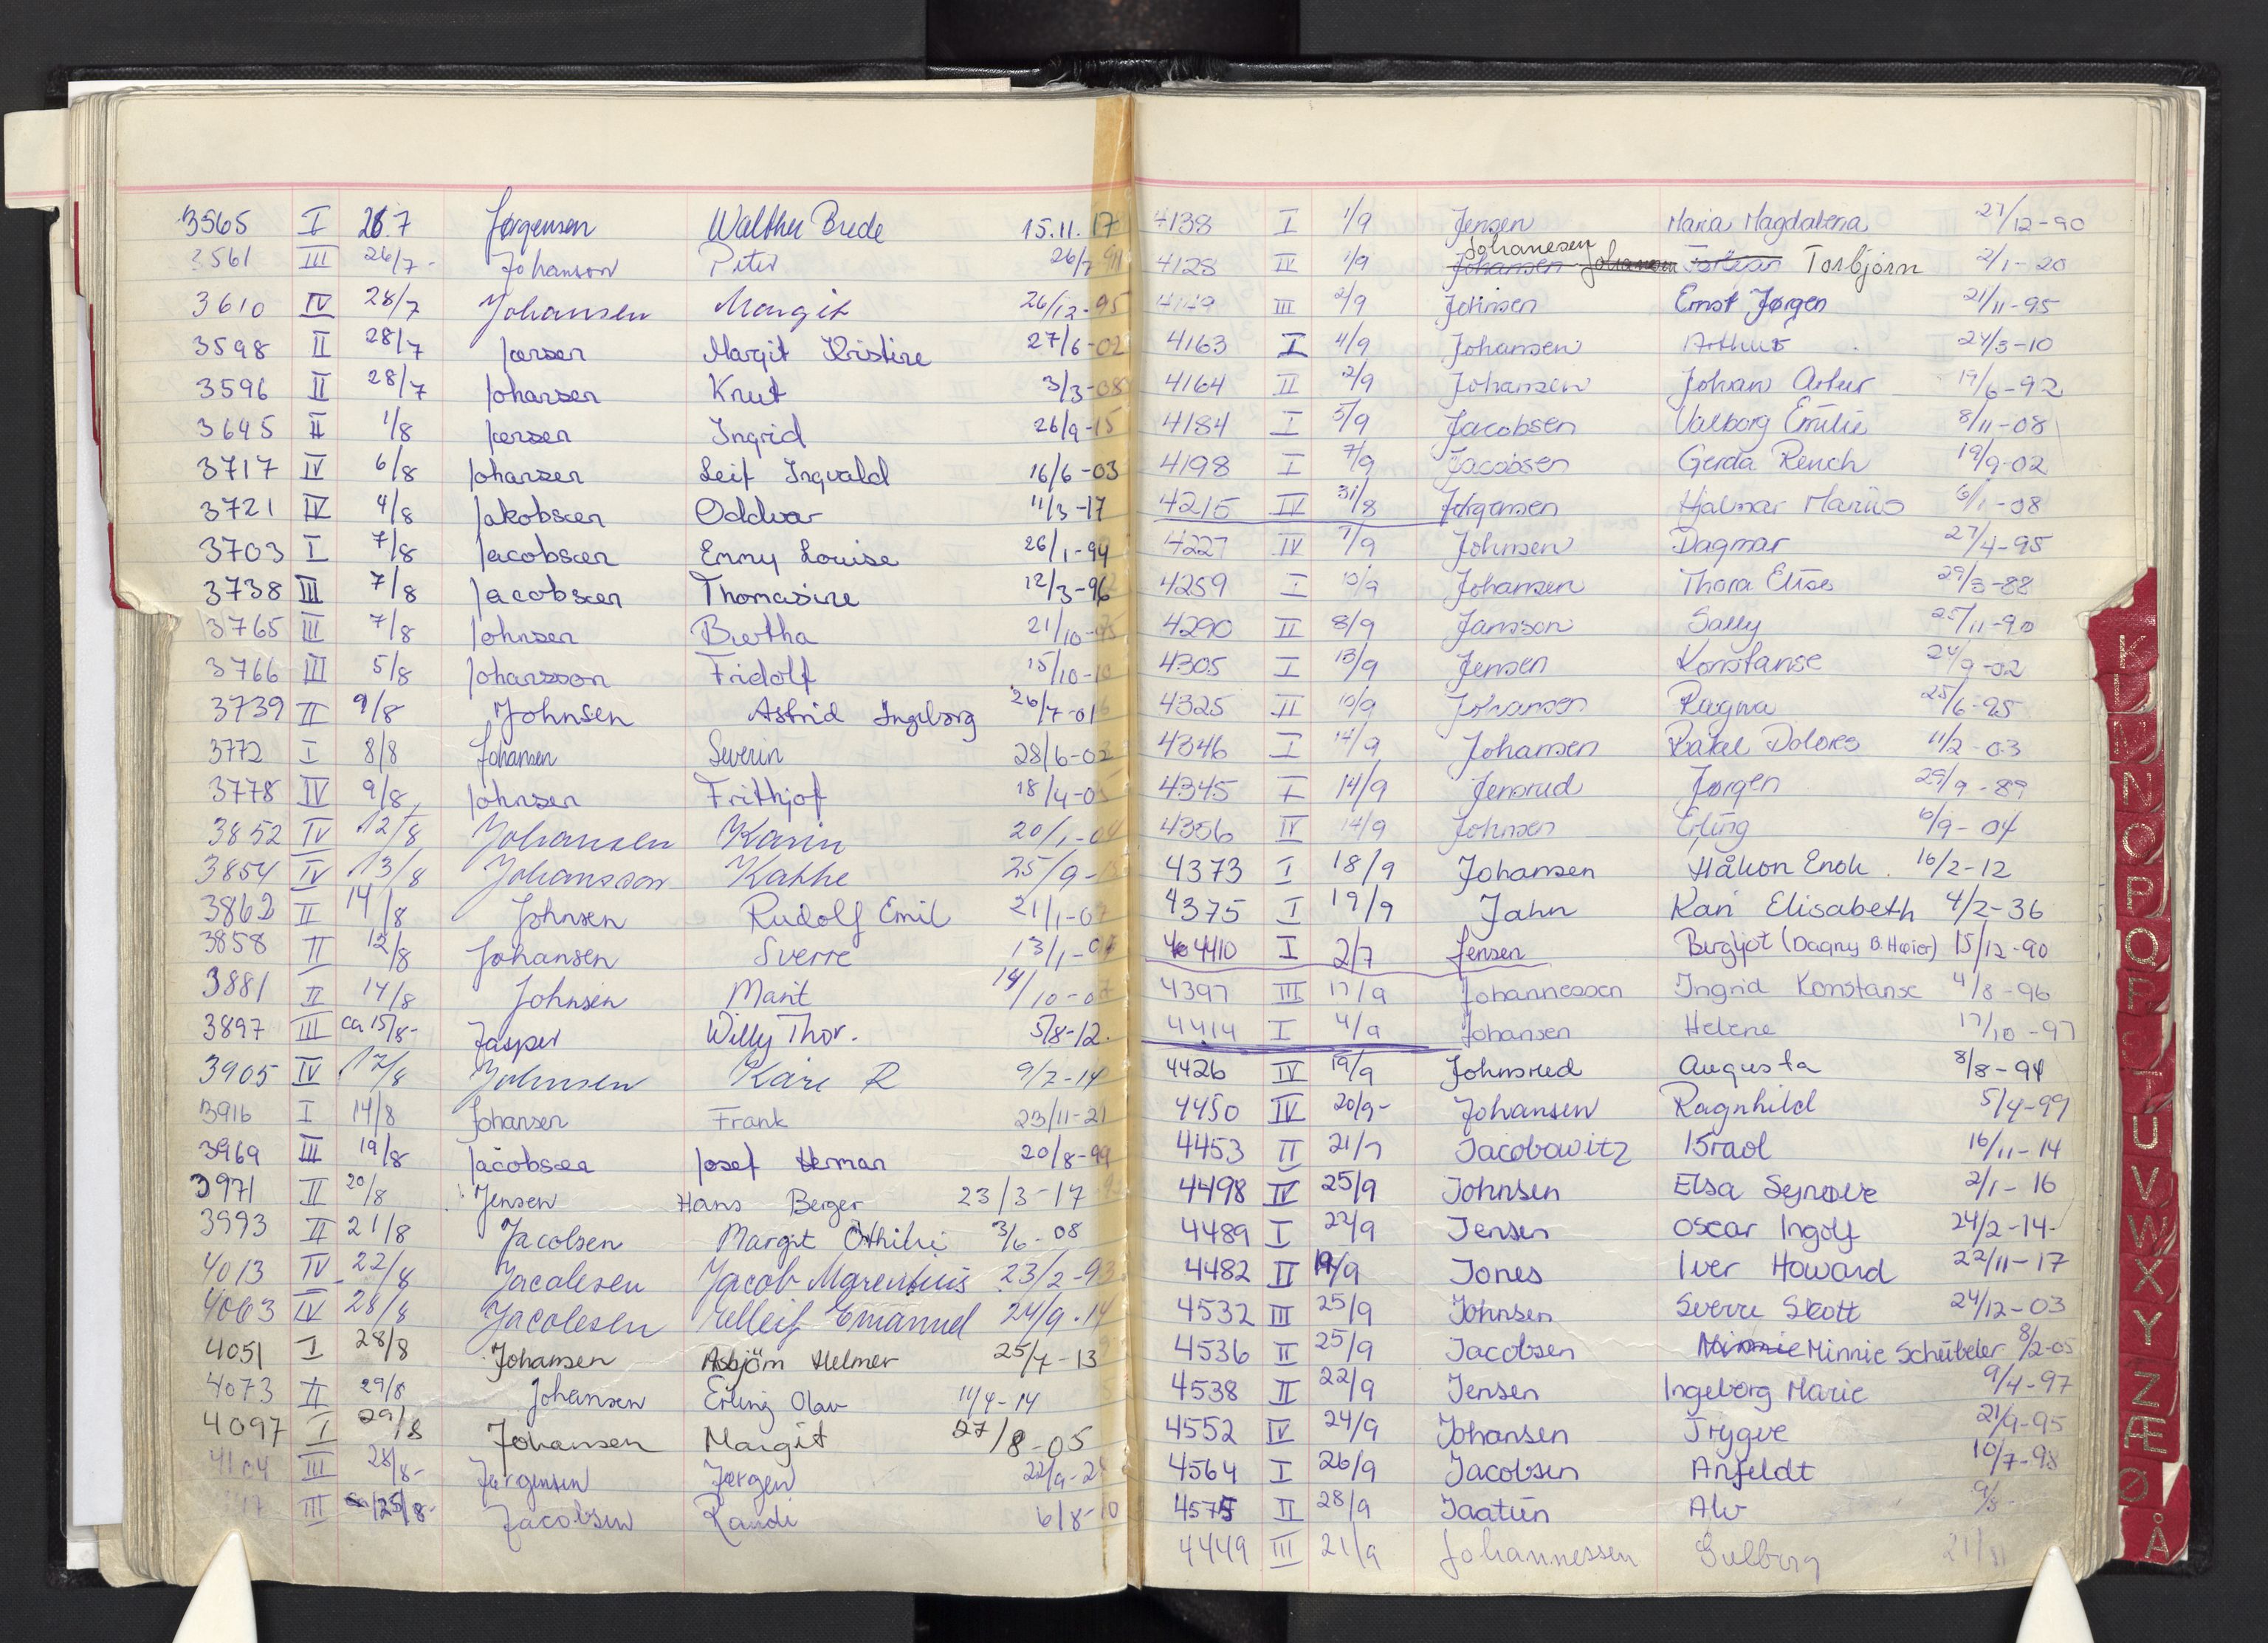 3565 I 26.7 Jørgensen Walther Brede 15.11.17
3561 III 26/7- Johanson Peter 26/7
3610 IV 28/7 Johansen Margit 26/12-95
3598 II 28/7 Jensen Margit Kristine 27/6-02
3596 II 28/7 Johansen Knut 3/3-08
3645 II 1/8 Jensen Ingrid 26/9-15
3717 IV 6/8 Johansen Leif Ingvald 16/6-03
3721 IV 4/8 Jakobsen Oddvar 11/3-17
3703 I 7/8 Jacobsen Emmy Louise 26/1-94
3738 III 7/8 Jacobsen Thomasine 12/3-96
3765 III 7/8 Johnsen Bertha 21/10
3766 III 5/8 Johansson Fridolf 15/10-10
3739 II 9/8 Johnsen Astrid Ingeborg 26/7-01
3772 I 8/8 Johansen Severin 28/6-02
3778 IV 9/8 Johnsen Frithjof 18/4-05
3852 IV 12/8 Johansen Karin 20/1-04
3854 IV 13/8 Johansson Kathe 25/9
3862 II 14/8 Johnsen Rudolf Emil 21/1-07
3858 II 12/8 Johansen Sverre 13/1
3881 II 14/8 Johnsen Marit 14/10
3897 III ca 15/8- Jasper Willy Thor. 5/8-12.
3905 IV 17/8 Johnsen Kåre R 9/7-14
3916 I 14/8 Johansen Frank 23/11-21
3969 III 19/8 Jacobsen Josef Herman 20/8-99
3971 II 20/8 Jensen Hans Berger 23/3-17
3993 II 21/8 Jacobsen Margit Othilie 3/6-08
4013 IV 22/8 Jacobsen Jacob Marentius 23/2-93
4063 IV 28/8 Jacobsen Elleif Emanuel 24/9.14
4051 I 28/8 Johansen Asbjörn Helmer 25/7-13
4073 II 29/8 Johansen Erling Olav 11/4-14
4097 I 29/8 Johansen Margit 27/8-05
4104 III 28/8- Jørgensen Jørgen 22/9-2
III 25/8- Jacobsen Randi 6/8-10
4138 I 1/9 Jensen Maria Magdalena 27/12-90
Johanesen
4128 IV 1/9 Johansen Johansen Torbjørn 2/1-20
4149 III 2/9 Johnsen Ernst Jørgen 21/11-95
4163 I 4/9 Johansen Arthur 24/3-10
4164 II 2/9 Johansen Johan Artur 19/6-92
4184 I 5/9 Jacobsen Valborg Emilie 8/11-08
4198 I 7/9 Jacobsen Gerda Rench 19/9-02
4215 IV 31/8 Jørgensen Hjalmar Marius 6/1-08
4227 IV 7/9 Johnsen Dagmar 27/4-95
4259 I 10/9 Johansen Thora Elise 29/3-88
4290 II 8/9 Jansson Sally 25/11-90
4305 I 13/9 Jensen Konstanse 24/9-02
4325 II 10/9 Johansen Ragna 25/6-95
4346 I 14/9 Johansen Rakel Dolores 11/2-03
4345 I 14/9 Jensrud Jørgen 29/9-89
4356 IV 14/9 Johnsen Erling 6/9-04
4373 I 18/9 Johansen Håkon Enok. 16/2-12
4375 I 19/9 Jahn Kari Elisabeth 4/2-36
4410 I 2/7 Jensen Bergljot (Dagny B. Høier) 15/12-90
4397 III 17/9 Johannessen Ingrid Konstanse 4/8-96
4414 I 4/9 Johansen Helene 17/10-97
4426 IV 19/9 Johnsrud Augusta 8/8-94
4450 IV 20/9- Johansen Ragnhild 5/4-99
4453 II 21/7 Jacobowitz Israel 16/11-14
4498 IV 25/9 Johnsen Elsa Synøve 2/1-16
4489 I 22/9 Jensen Oscar Ingolf 24/2-14-
4482 II 19/9 Jones Iver Howard 22/11-17
4532 III 25/9 Johnsen Sverre Skott 24/12-03
4536 II 25/9 Jacobsen Minnie Minnie Schübeler 8/2-05
4538 II 22/9 Jensen Ingeborg Marie 9/4-97
4552 IV 24/9 Johansen Trygve 21/9-95
4564 I 26/9 Jacobsen Anfeldt 10/7-98
4575 II 28/9 Jaatun Alv 9/8-
4449 III 21/9 Johannessen Solberg 21/11
K
N
O
P
Q
R
U
V
W
X
Y
Z
Æ
Ø
Å